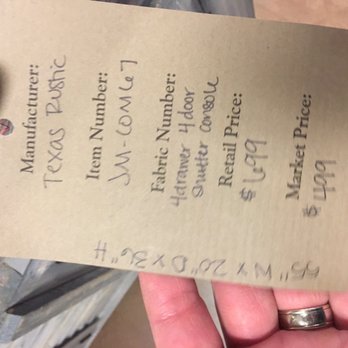 Manufacturer:
Texas Rustic
Item Number:
JM-COM67
Fabric Number:
4drawer 4door
Shutter Console
Retail Price:
$ 699
Market Price:
$ 499
20" D x 36" H